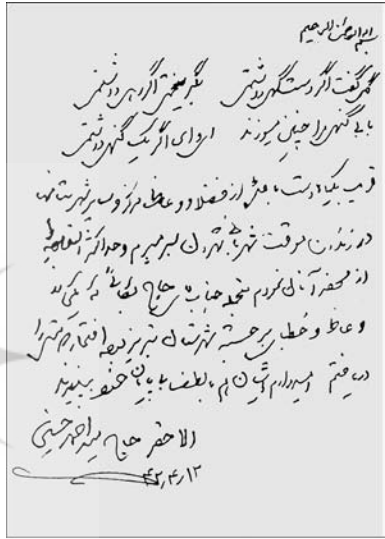 بسم الله الرحمن الرحیم
گفت اگر دستگهی داشتمی بگریختمی اگر رهی داشتمی
با بی گنهی مرا چنین میسوزند ای وای اگر یک گنهی داشتمی
قریب یکماه است با جمعی از فضلاء و وعاظ مرکز و سایر شهرستانها
در زندان موقت شهربانی تهران بسر میبرم و حداکثر استفاده را
از محضر آنان نمودم منجمله جناب آقای حاج که یکی از
وعاظ و خطبای برجسته شهرستان تبریز بوده افتخار آشنائی را
دریافتم امیدوارم ایشان هم با لطف بی پایان خود بپذیرند
الاحقر حاج سید احمد حسینی
۴۲٫۴٫۱۲